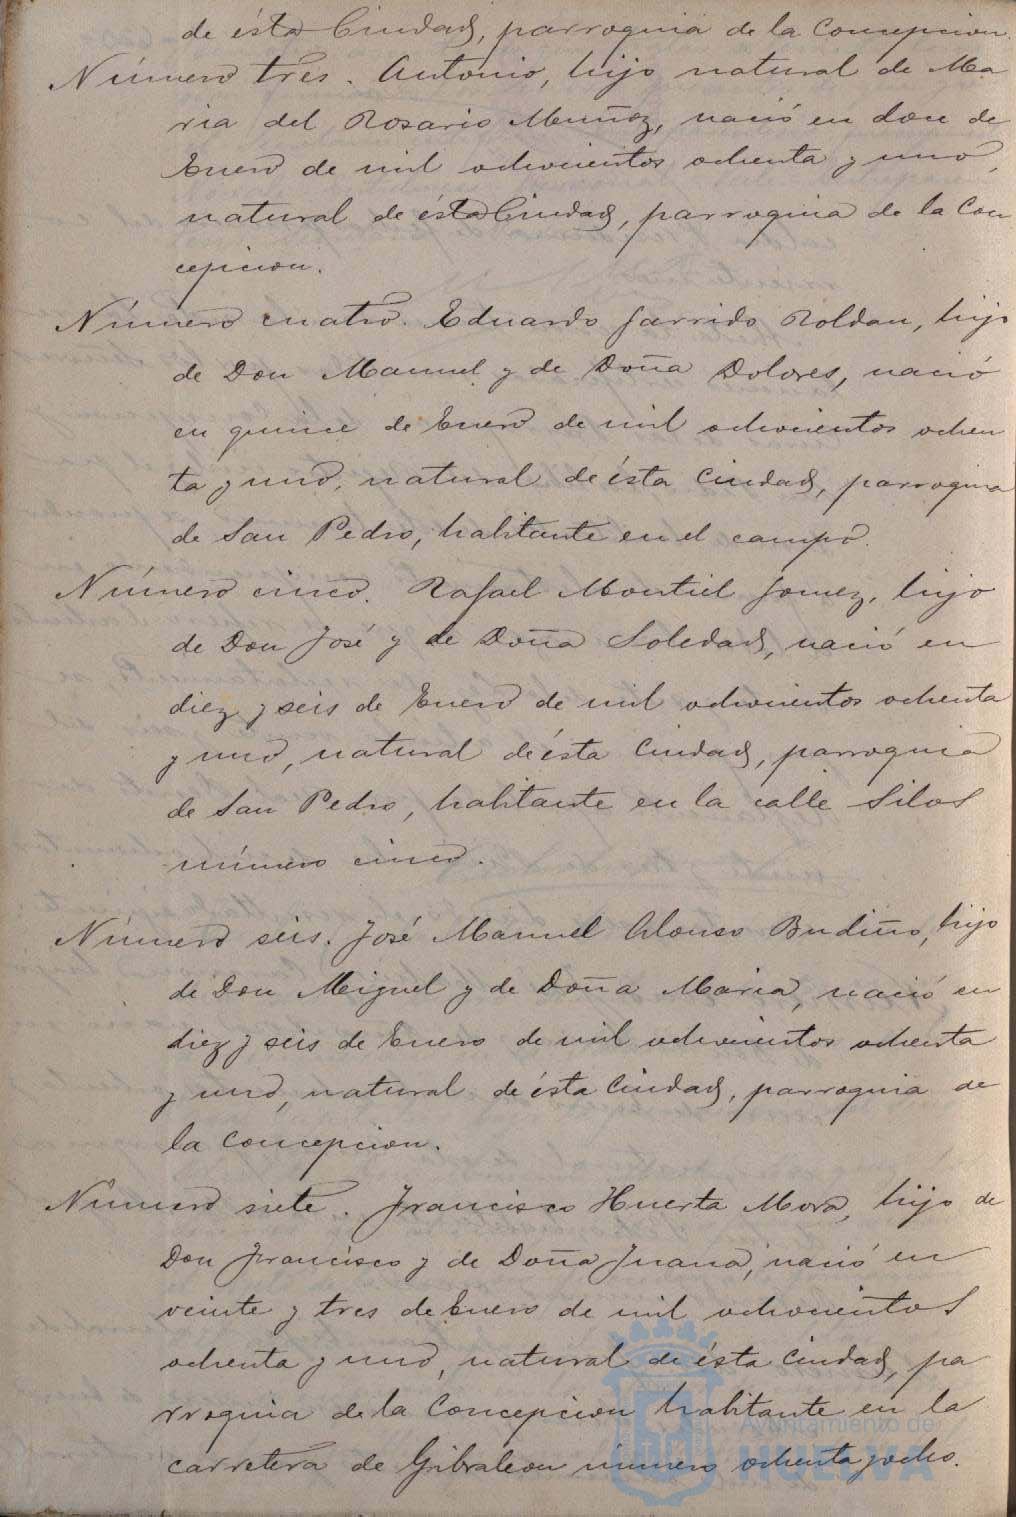 de ésta Ciudad, parroquia de la Concepcion.
Número tres. Antonio, hijo natural de Ma
ria del Rosario Muñoz, nació en doce de
Enero de mil ochocientos ochenta y uno,
natural de ésta Ciudad, parroquia de la Con
cepcion.
Número cuatro. Eduardo Garrido Roldan, hijo
de Don Manuel y de Doña Dolores, nació
en quince de Enero de mil ochocientos ochen
ta y uno, natural de ésta Ciudad, parroquia
de San Pedro, habitante en el campo.
Número cinco. Rafael Montiel Gomez, hijo
de Don José y de Doña Soledad, nació en
diez y seis de Enero de mil ochocientos ochenta
y uno, natural de ésta Ciudad, parroquia
de San Pedro, habitante en la calle Silos
número cinco.
Número seis. José Manuel Alonso Budiño, hijo
de Don Miguel y de Doña Maria, nació en
diez y seis de Enero de mil ochocientos ochenta
y uno, natural de ésta Ciudad, parroquia de
la Concepcion.
Número siete. Francisco Huerta Mora, hijo de
Don Francisco y de Doña Juana, nació en
veinte y tres de Enero de mil ochocientos
ochenta y uno, natural de ésta Ciudad, pa
rroquia de la Concepcion habitante en la
carretera de Gibraleon número ochenta y ocho.
Ayuntamiento de
HUELVA